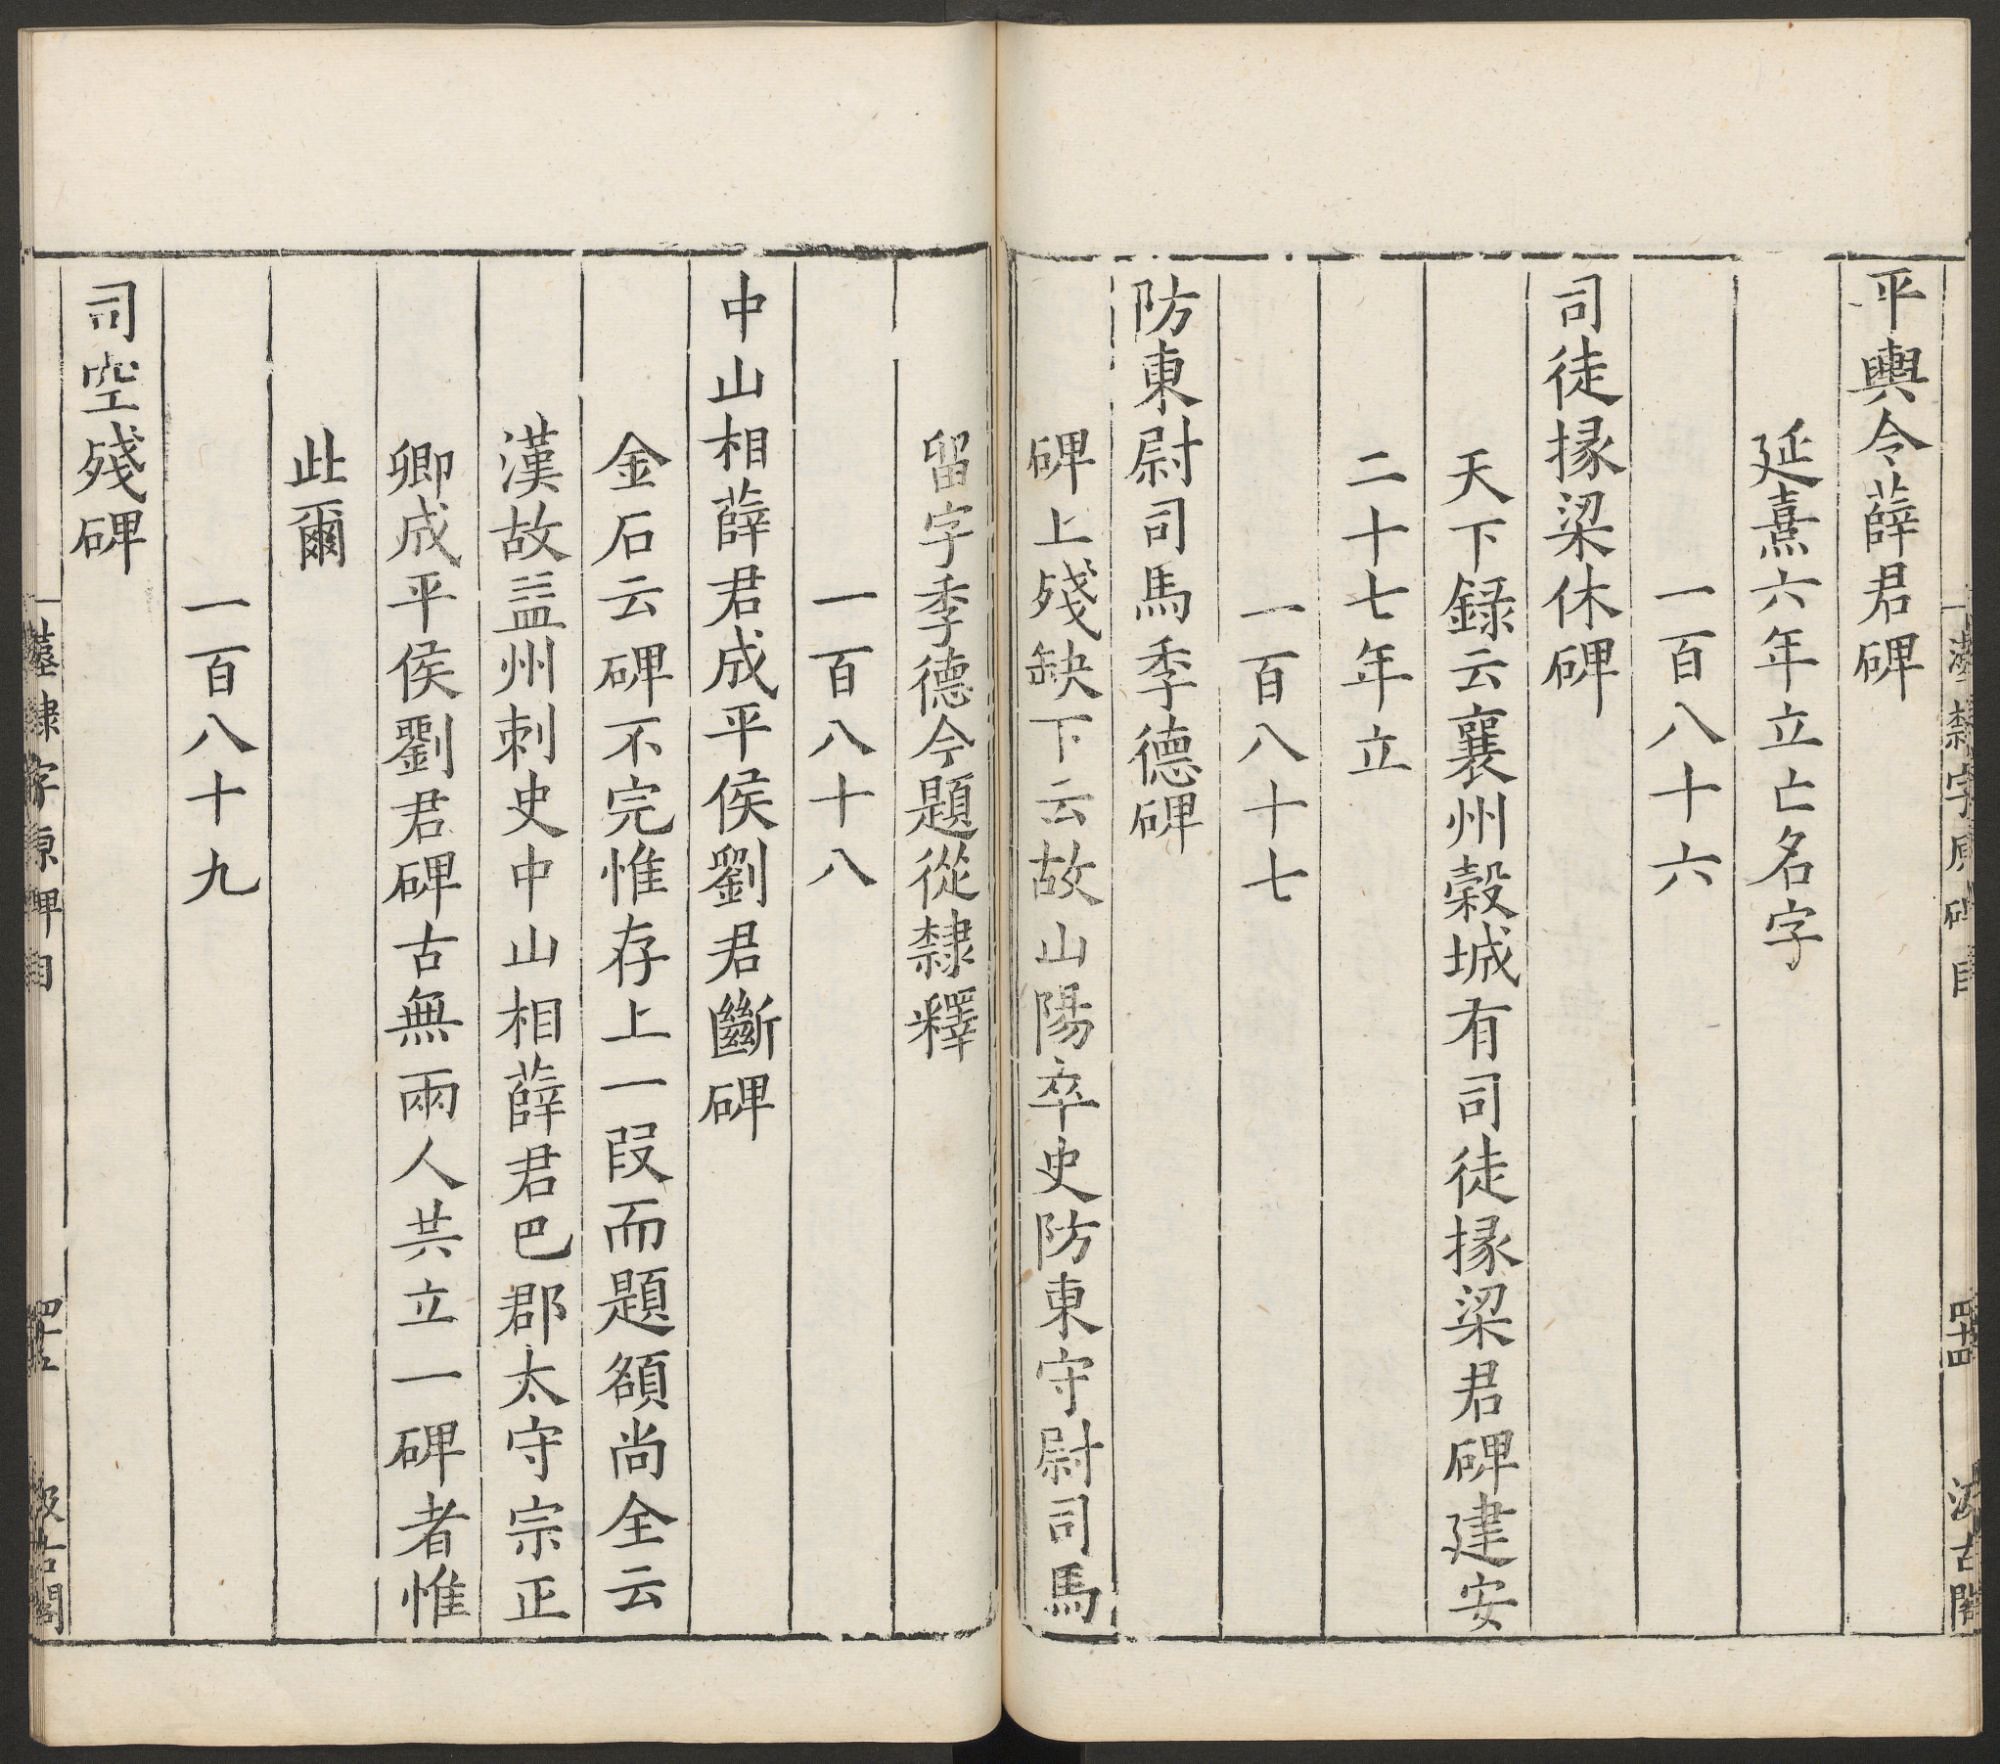 平輿令薛君碑
延熹六年立亡名字
一百八十六
司徒掾梁休碑
天下録云襄州穀城有司徒掾梁君碑建安
二十七年立
一百八十七
防東尉司馬季德碑
碑上殘缺下云故山陽卒史防東守尉司馬
留字季德今題從隸釋
一百八十八
中山相薛君成平侯劉君斷碑
金石云碑不完惟存上一段而題額尚全云
漢故益州刺史中山相薛君巴郡太守宗正
卿成平侯劉君碑古無兩人共立一碑者惟
此爾
一百八十九
司空殘碑
漢隸字原碑目
四十四
汲古閣
隸字原碑目
四十五
汲古閣